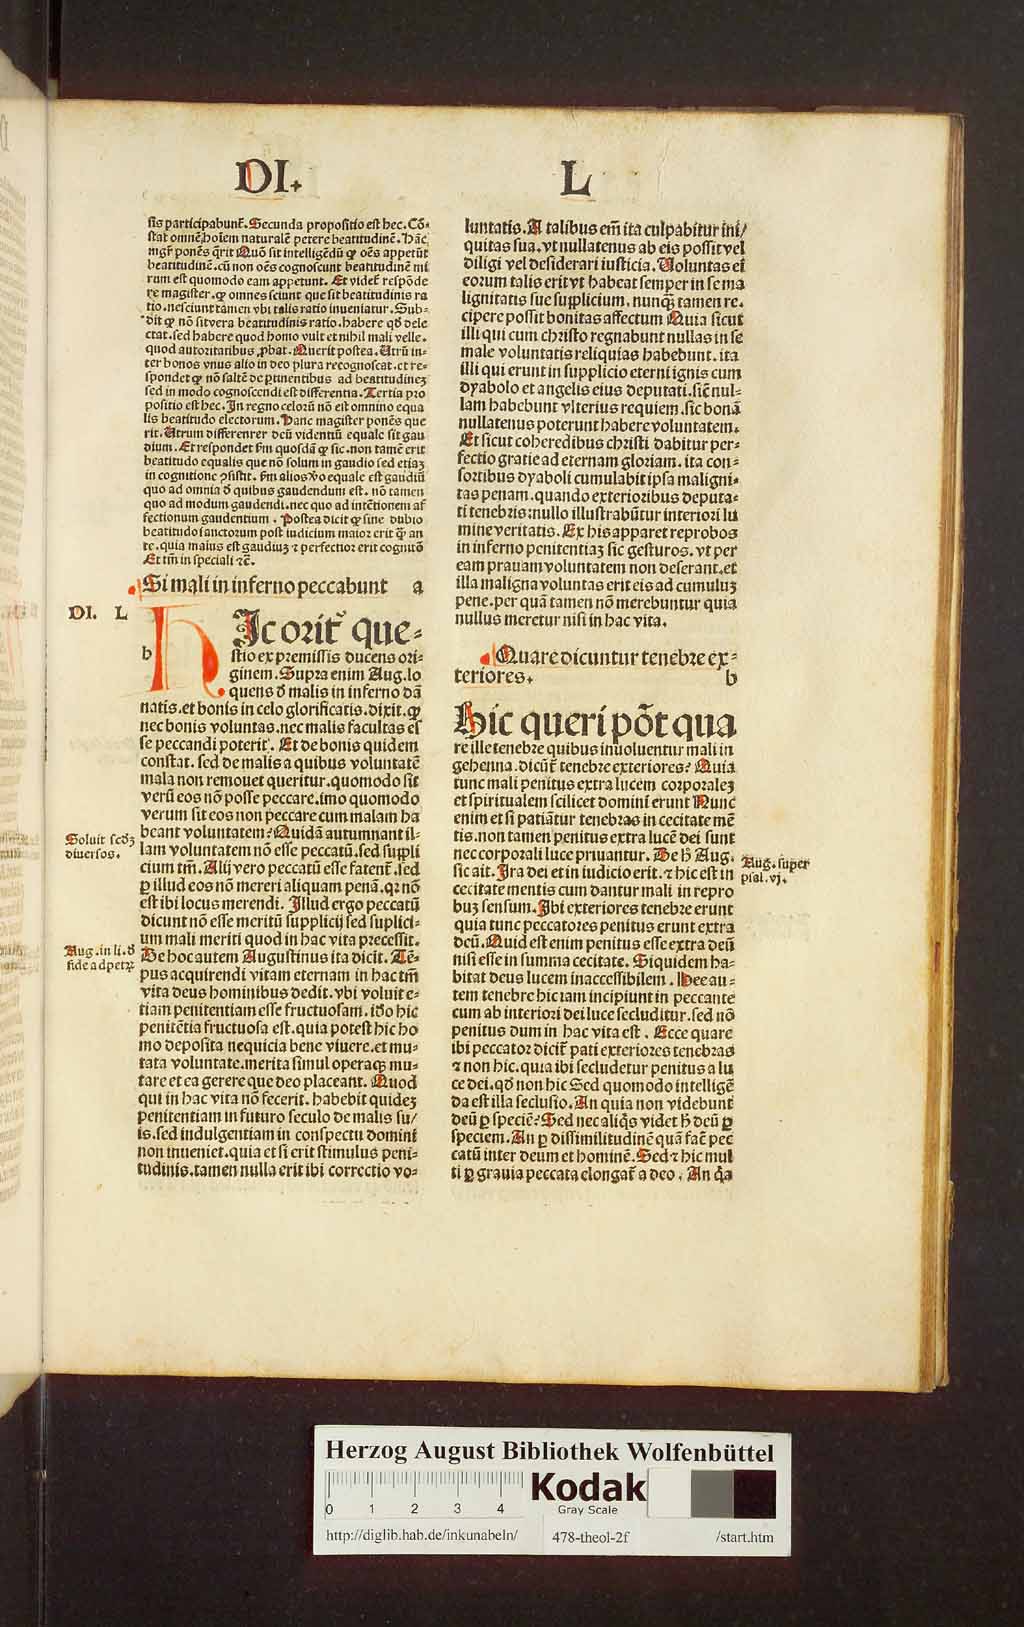 DI. L
sis participabunt̃. Secunda propositio est hec. Cõ-
stat omnẽ hoĩem naturalẽ petere beatitudinẽ. Hãc
mgr̃ ponẽs q̃rit Quõ sit intelligẽdũ ꝙ oẽs appetũt
beatitudinẽ. cũ non oẽs cognoscunt beatitudinẽ mi
rum est quomodo eam appetunt. Et videt̃ respõde
re magister. ꝙ omnes sciunt que sit beatitudinis ra
tio. nesciunt tamen vbi talis ratio inueniatur. Sub-
dit ꝙ nõ sit vera beatitudinis ratio. habere qd̃ dele
ctat. sed habere quod homo vult et nihil mali velle.
quod autoritatibus ꝓbat. Querit postea. Utrũ in-
ter bonos vnus alio in deo plura recognoscat. et re-
spondet ꝙ nõ saltẽ de ꝑtinentibus ad beatitudineꝫ
sed in modo cognoscendi est differentia. Tertia pro
positio est hec. In regno celorũ nõ est omnino equa
lis beatitudo electorum. Hanc magister ponẽs que
rit. Utrum differenter deũ videntiũ equale sit gau
dium. Et respondet ẜm quosdã ꝙ sic. non tamẽ erit
beatitudo equalis que nõ solum in gaudio sed etiaꝫ
in cognitione ꝯsistit. ẜm alios ṽo equale est gaudiũ
quo ad omnia d̃ quibus gaudendum est. nõ tamen
quo ad modum gaudendi. nec quo ad intẽtionem af
fectionum gaudentium. Postea dicit ꝙ sine dubio
beatitudo sanctorum post iudicium maior erit ꝙ̃ an
te. quia maius est gaudiuꝫ ⁊ perfectior erit cognitiõ
Et tm̃ in speciali ⁊c̃.
Si mali in inferno peccabunt a
DI. L
h
HIc orit̃ que-
stio ex premissis ducens ori-
ginem. Supra enim Aug. lo
quens d̃ malis in inferno dã
natis. et bonis in celo glorificatis. dixit. ꝙ
nec bonis voluntas. nec malis facultas es
se peccandi poterit. Et de bonis quidem
constat. sed de malis a quibus voluntatẽ
mala non remouet queritur. quomodo sit
verũ eos nõ posse peccare. imo quomodo
verum sit eos non peccare cum malam ha
beant voluntatem? Quidã autumnant il-
lam voluntatem nõ esse peccatũ. sed suppli
cium tm̃. Alij vero peccatũ esse fatent̃. sed
ꝑ illud eos nõ mereri aliquam penã. qꝛ nõ
est ibi locus merendi. Illud ergo peccatũ
dicunt nõ esse meritũ supplicij sed suplici-
um mali meriti quod in hac vita precessit.
De hoc autem Augustinus ita dicit. Tẽ-
pus acquirendi vitam eternam in hac tm̃
vita deus hominibus dedit. vbi voluit e-
tiam penitentiam esse fructuosam. ido hic
penitẽtia fructuosa est. quia potest hic ho
mo deposita nequicia bene viuere. et mu-
tata voluntate. merita simul operaqꝫ mu-
tare et ea gerere que deo placeant. Quod
qui in hac vita nõ fecerit. habebit quideꝫ
penitentiam in futuro seculo de malis su/
is. sed indulgentiam in conspectu domini
non inueniet. quia et si erit stimulus peni-
tudinis. tamen nulla erit ibi correctio vo-
Soluit scd̃ꝫ
diuersos.
Aug. in li. d̃
fide ad petꝝ
luntatis. A talibus em̃ ita culpabitur ini/
quitas sua. vt nullatenus ab eis possit vel
diligi vel desiderari iusticia. Voluntas ei
eorum talis erit vt habeat semper in se ma
lignitatis sue supplicium. nunq̃ tamen re-
cipere possit bonitas affectum Quia sicut
illi qui cum christo regnabunt nullas in se
male voluntatis reliquias habebunt. ita
illi qui erunt in supplicio eterni ignis cum
dyabolo et angelis eius deputati. sicẽ nul-
lam habebunt vlterius requiem. sic bonã
nullatenus poterunt habere voluntatem.
Et sicut coheredibus christi dabitur per-
fectio gratie ad eternam gloriam. ita con-
sortibus dyaboli cumulabit ipsa maligni-
tas penam. quando exterioribus deputa-
ti tenebris: nullo illustrabũtur interiori lu
mine veritatis. Ex his apparet reprobos
in inferno penitentiaꝫ sic gesturos. vt per
eam prauam voluntatem non deserant. et
illa maligna voluntas erit eis ad cumuluꝫ
pene. per quã tamen nõ merebuntur quia
nullus meretur nisi in hac vita.
Quare dicuntur tenebre ex-
teriores. b
Hic queri põt qua
re ille tenebre quibus inuoluentur mali in
gehenna. dicũt̃ tenebre exteriores? Quia
tunc mali penitus extra lucem corporaleꝫ
et spiritualem scilicet domini erunt Nunc
enim et si patiãtur tenebras in cecitate mẽ
tis. non tamen penitus extra lucẽ dei sunt
nec corporali luce priuantur. De h̃ Aug.
sic ait. Ira dei et in iudicio erit. ⁊ hic est in
cecitate mentis cum dantur mali in repro
buꝫ sensum. Ibi exteriores tenebre erunt
quia tunc peccatores penitus erunt extra
deũ. Quid est enim penitus esse extra deũ
nisi esse in summa cecitate. Siquidem ha-
bitat deus lucem inaccessibilem. Hee au-
tem tenebre hic iam incipiunt in peccante
cum ab interiori dei luce secluditur. sed nõ
penitus dum in hac vita est. Ecce quare
ibi peccator dicit̃ pati exteriores tenebras
⁊ non hic. quia ibi secludetur penitus a lu
ce dei. qd̃ non hic Sed quomodo intelligẽ
da est illa seclusio. An quia non videbunt
deũ ꝑ speciẽ? Sed nec aliq̃s videt h̃ deũ ꝑ
speciem. An ꝑ dissimilitudinẽ quã fac̃ pec
catũ inter deum et hominẽ. Sed ⁊ hic mul
ti ꝑ grauia peccata elongat̃ a deo. An q̃a
Aug. super
psal. vj.
Herzog August Bibliothek Wolfenbüttel
0 1 2 3 4
Kodak
Gray Scale
http://diglib.hab.de/inkunabeln/ 478-theol-2f /start.htm